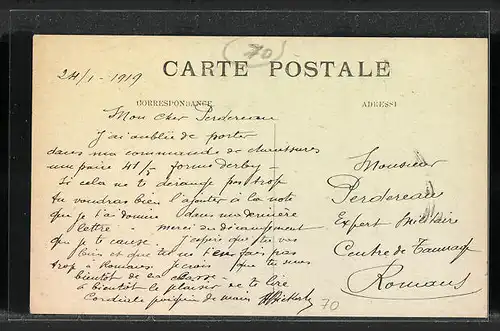 (70)
24/1 - 1919
CARTE POSTALE
CORRESPONDANCE
ADRESSE
Mon cher Perdereau
J'ai oublié de porter
dans ma commande de chaussures
une paire 41 1/2 forme derby -
Si cela ne te dérange pas trop
tu voudras bien l'ajouter à la note
que je t'ai donnée dans ma dernière
lettre - merci du dérangement
que je te cause. J'espère que tu vas
bien et que tu ne t'en fais pas
trop à Romans je crois que tu nous
bientôt de la classe.
à bientôt le plaisir de te lire
Cordiale poignée de main
70
Monsieur
Perdereau
Expert Militaire
Centre de Tannage
Romans